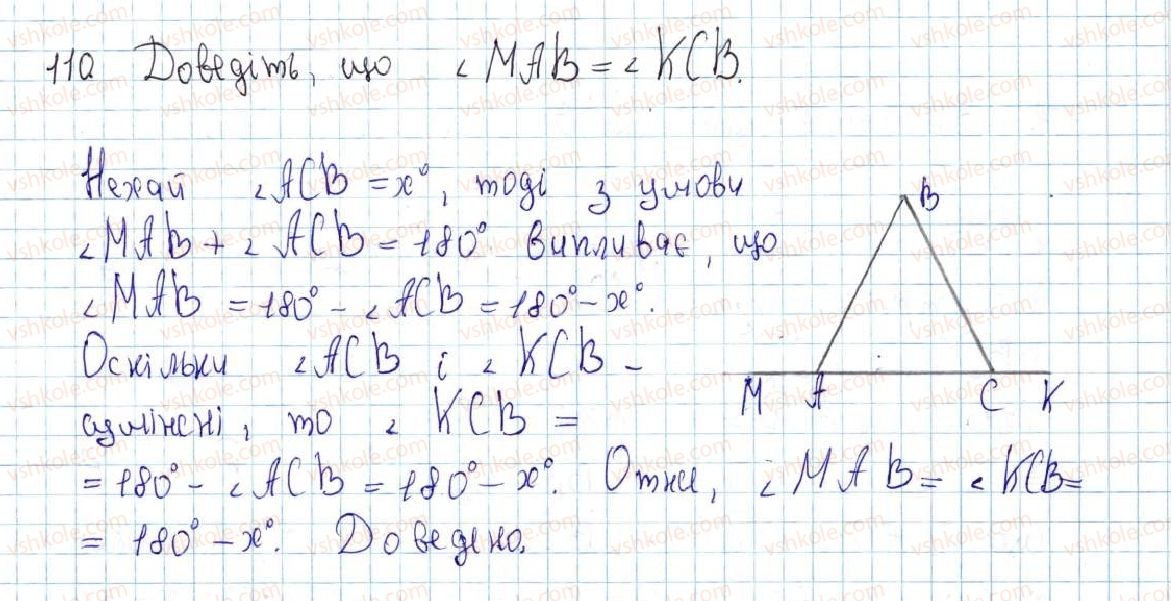 110 Доведіть, що ∠MAB = ∠KCB.
Нехай ∠ACB = x°, тоді з умови
∠MAB + ∠ACB = 180° випливає, що
∠MAB = 180° - ∠ACB = 180° - x°.
Оскільки ∠ACB і ∠KCB -
суміжні, то ∠KCB =
= 180° - ∠ACB = 180° - x°. Отже, ∠MAB = ∠KCB =
= 180° - x°. Доведено.
B
M A C K
vshkole.com